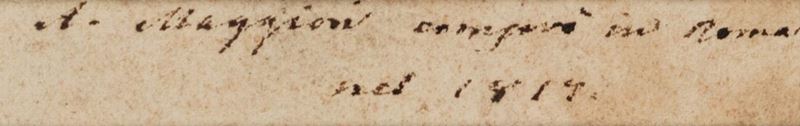 A. Maggiori comperò in Roma
nel 1817.